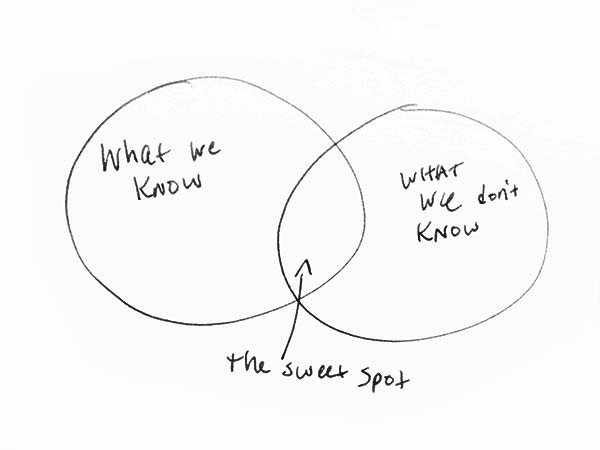 What we
Know
WHAT
We don't
Know
the sweet spot